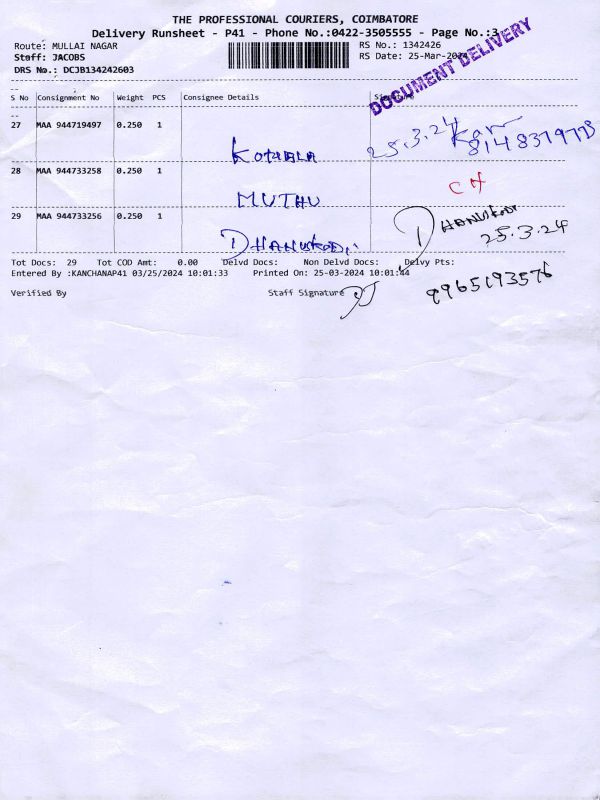 THE PROFESSIONAL COURIERS, COIMBATORE
Delivery Runsheet - P41 - Phone No.:0422-3505555 - Page No.:3
Route: MULLAI NAGAR RS No.: 1342426
Staff: JACOBS RS Date: 25-Mar-2024
DRS No.: DCJB134242603
DOCUMENT DELIVERY
S No Consignment No Weight PCS Consignee Details Signature
27 MAA 944719497 0.250 1
KOTHALA 25.3.24
28 MAA 944733258 0.250 1
MUTHU CH
29 MAA 944733256 0.250 1
DHANUSKODI DHANUSKODI
25.3.24
Tot Docs: 29 Tot COD Amt: 0.00 Delvd Docs: Non Delvd Docs: Delvy Pts:
Entered By :KANCHANAP41 03/25/2024 10:01:33 Printed On: 25-03-2024 10:01:44
9965193576
Verified By Staff Signature